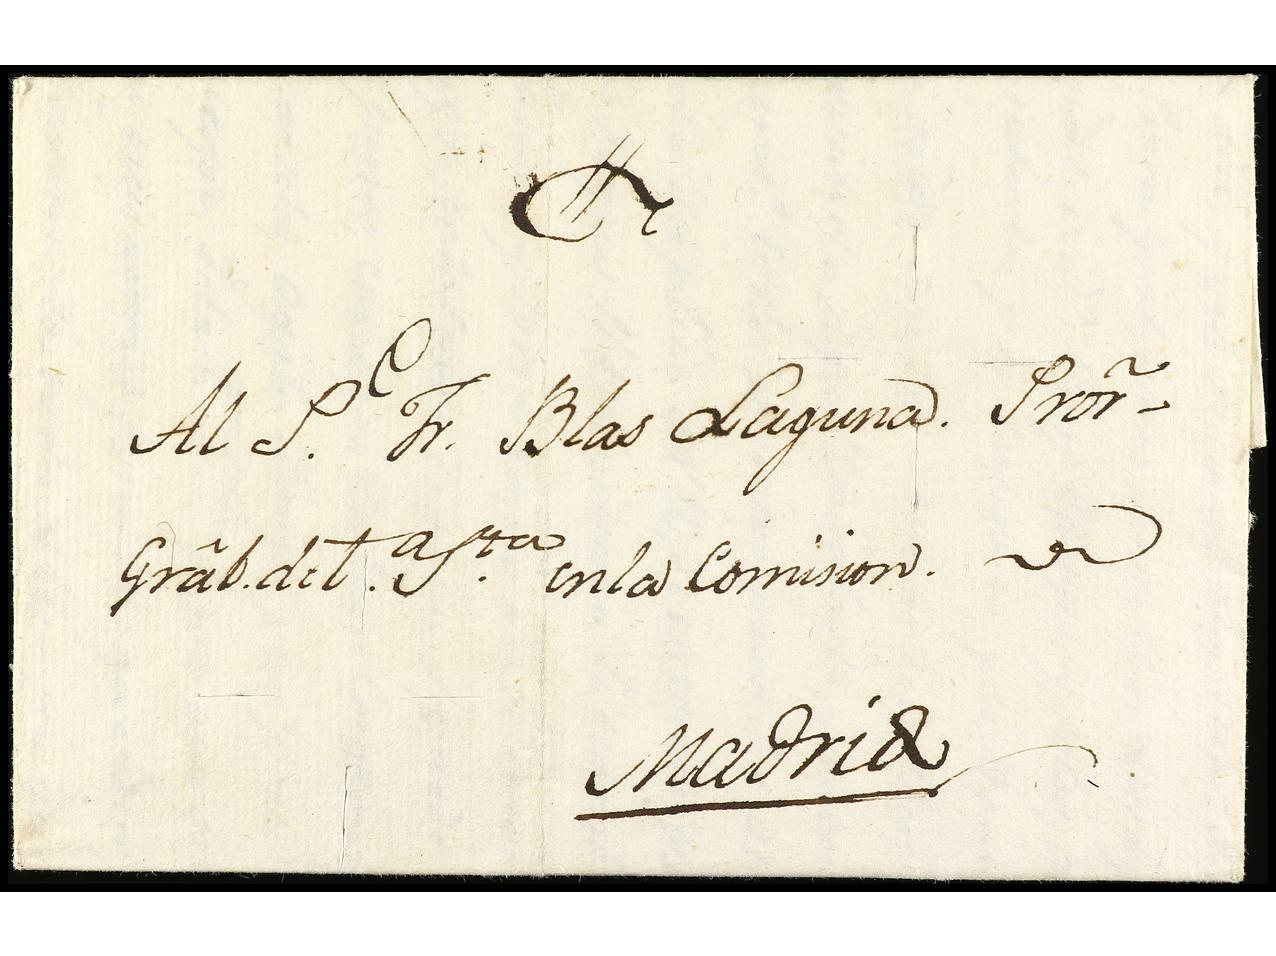 Al P.e Fr. Blas Laguna. Pror̃
Grãl. del. Asta en la Comision. de
Madrid